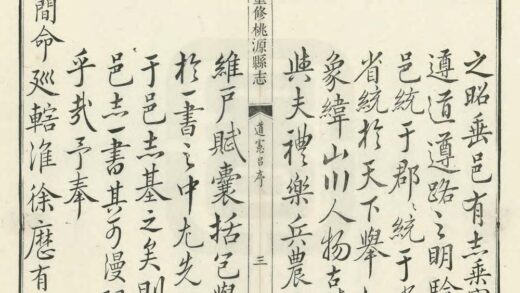 之昭垂邑有志乘
遵道遵路之明驗
邑統于郡〻統于
省統於天下舉
象緯山川人物古
與夫禮樂兵農
重修桃源縣志
道憲呂序
三
維戶賦囊括包舉
於一書之中尤先
于邑志基之矣則
邑志一書其可漫
乎哉予奉
簡命廵轄淮徐歷有